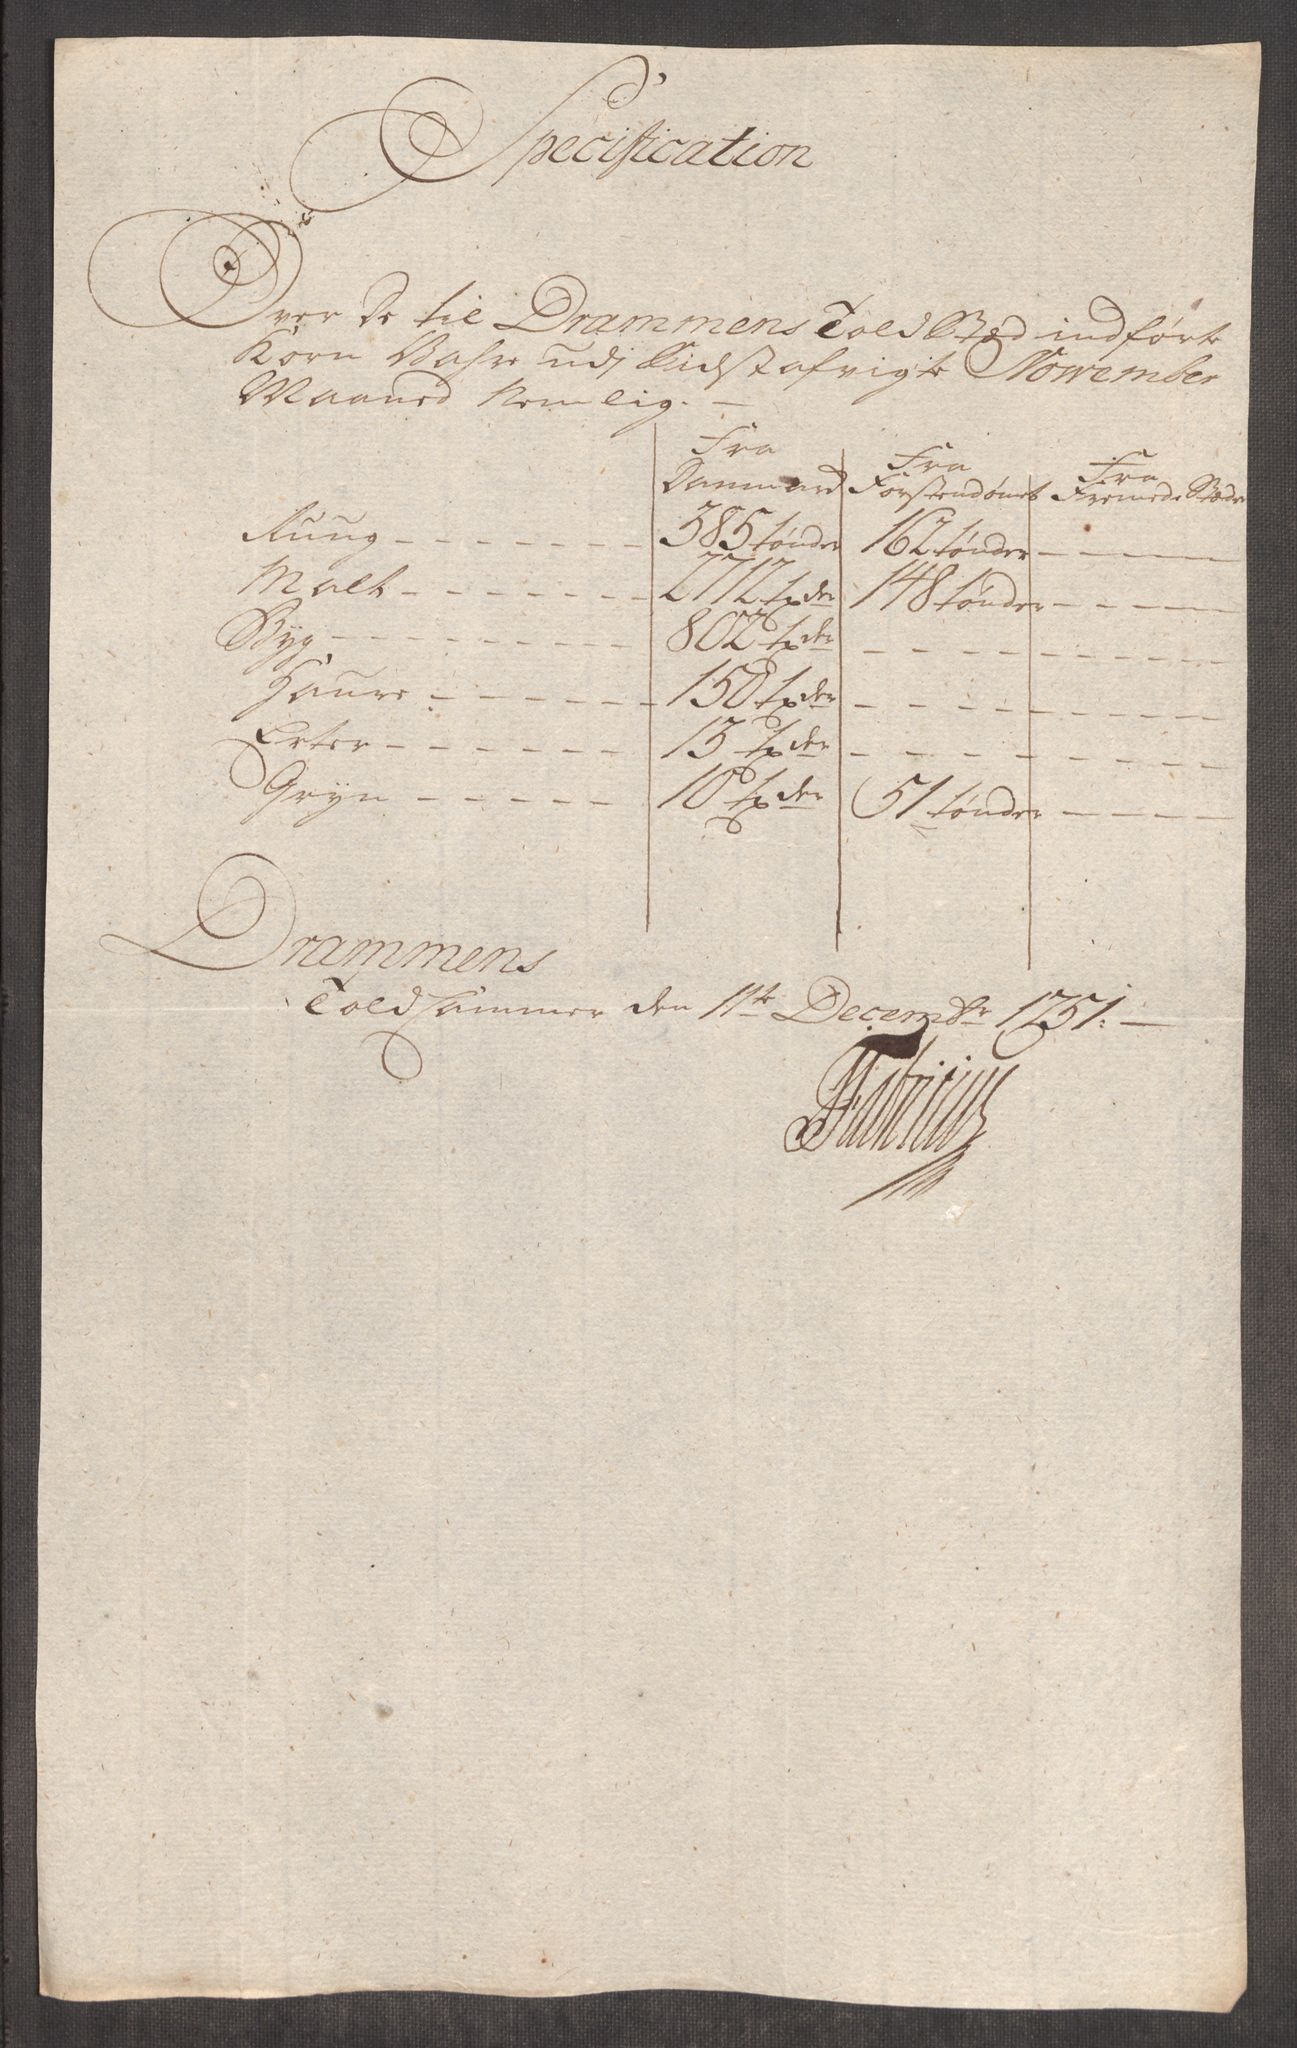 Specification
Over de til Drammens Told Sted indførte
Korn Vahre udj Sidst afvigte Nowember
Maaned Nemlig. —
Fra Danmard | Fra Førstendømet | Fra Fremede Stæder
Ruug - - - - - - - 385 tønder | 162 tønder - - - -
Malt - - - - - - - 2712 tøder | 148 tønder - - - -
Byg - - - - - - - 802 tøder - - - - - - - -
Haure - - - - - - 150 tøder - - - - - - - -
Erter - - - - - - 13 tøder - - - - - - - -
Gryn - - - - - - 10 tøder | 51 tønder - - - -
Drammens
Told Cammer den 11te Decembr 1751: —
Fabricius